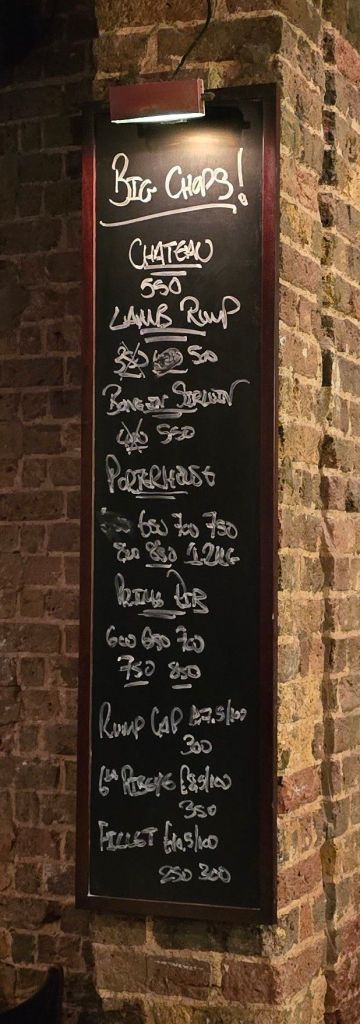 BIG CHOPS!
CHATEAU
550
LAMB RUMP
500
BONE IN SIRLOIN
550
PORTERHOUSE
650 700 750
800 850 1.2KG
PRIME RIB
600 650 700
750 800
RUMP CAP £7.5/100
300
RIBEYE £8.5/100
350
FILLET £10.5/100
250 300